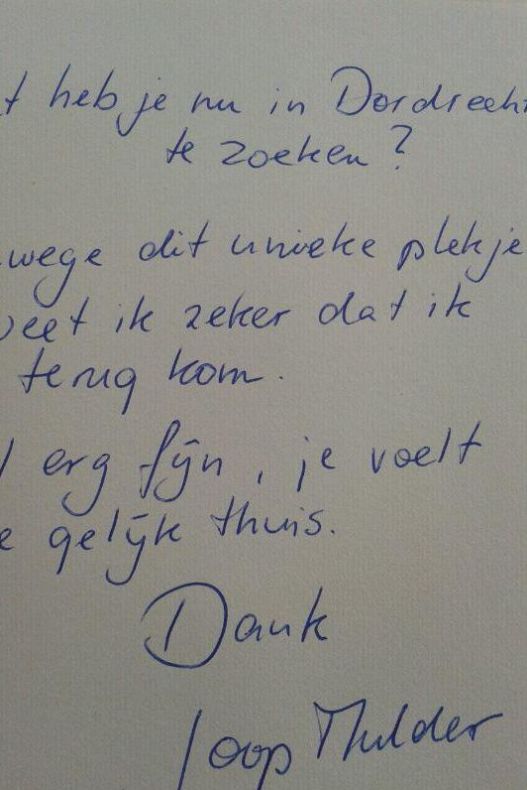 t heb je nu in Dordrecht
te zoeken?
wege dit unieke plekje
eet ik zeker dat ik
terug kom.
erg fijn, je voelt
e gelijk thuis.
Dank
Joop Mulder